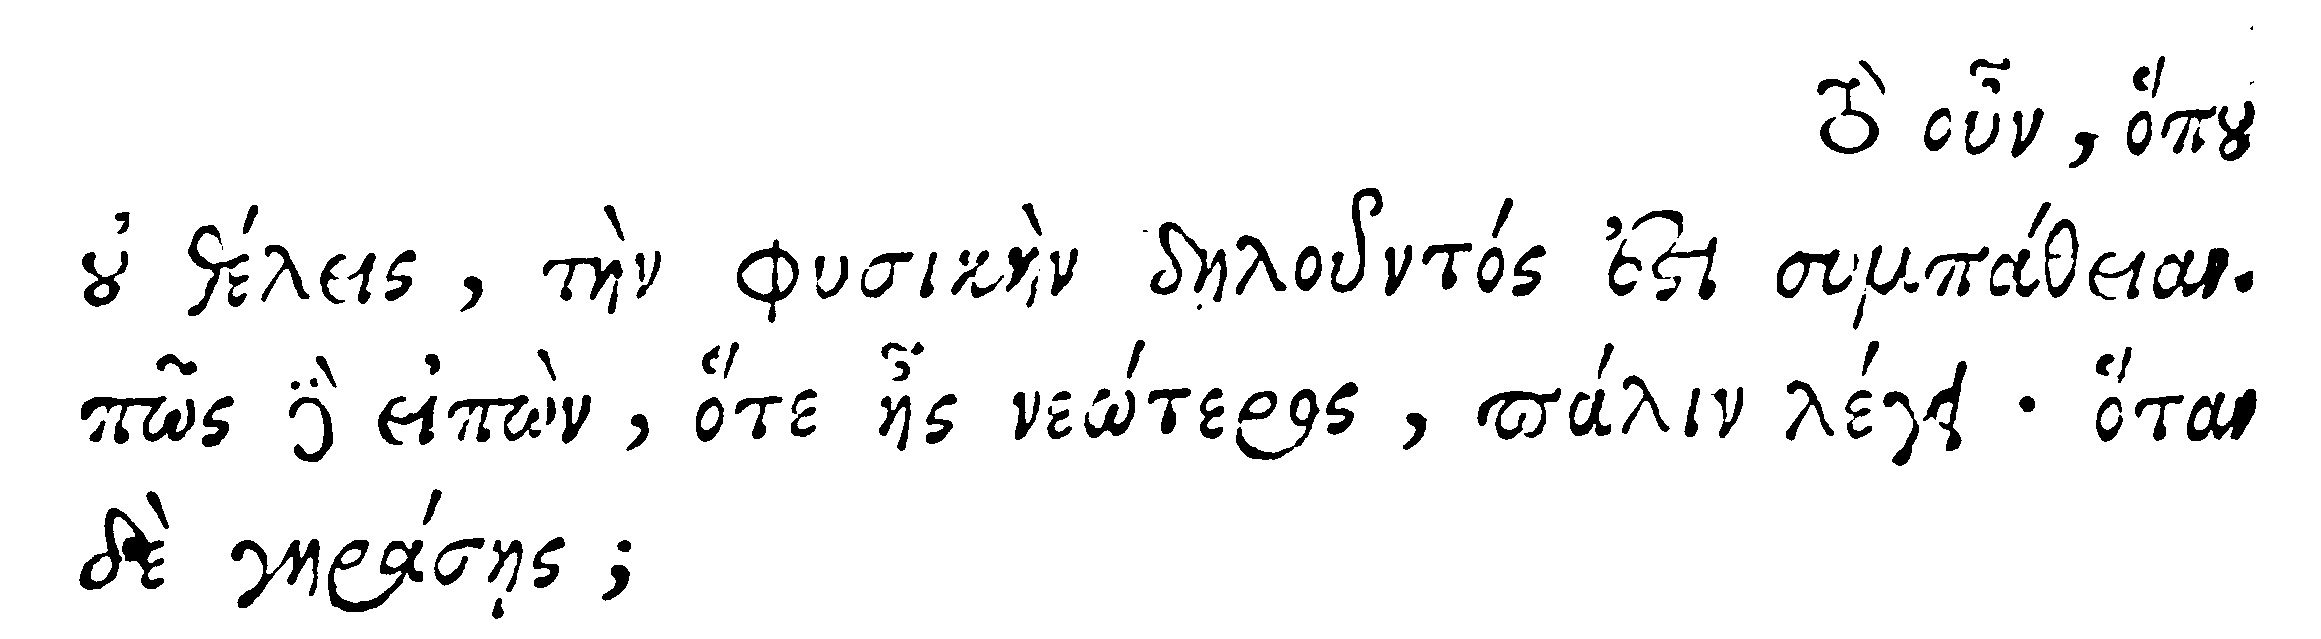 τὸ οὖν, ὅπου
οὐ θέλεις, τὴν φυσικὴν δηλοῦντός ἐστι συμπάθειαν.
πῶς γὰρ εἰπὼν, ὅτε ἦς νεώτερος, πάλιν λέγει · ὅταν
δὲ γηράσῃς;